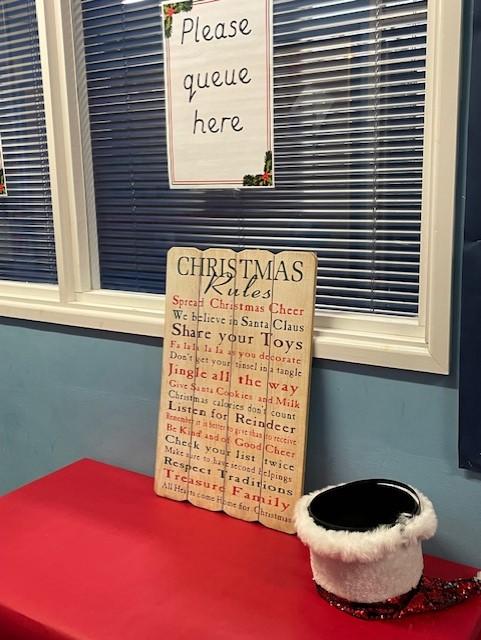 Please
queue
here
CHRISTMAS
Rules
Spread Christmas Cheer
We believe in Santa Claus
Share your Toys
Fa la la la la as you decorate
Don't get your tinsel in a tangle
Jingle all the way
Give Santa Cookies and Milk
Christmas calories don't count
Listen for Reindeer
Remember it is better to give than to receive
Be Kind and of Good Cheer
Check your list twice
Make sure to have second helpings
Respect Traditions
Treasure Family
All Hearts come Home for Christmas